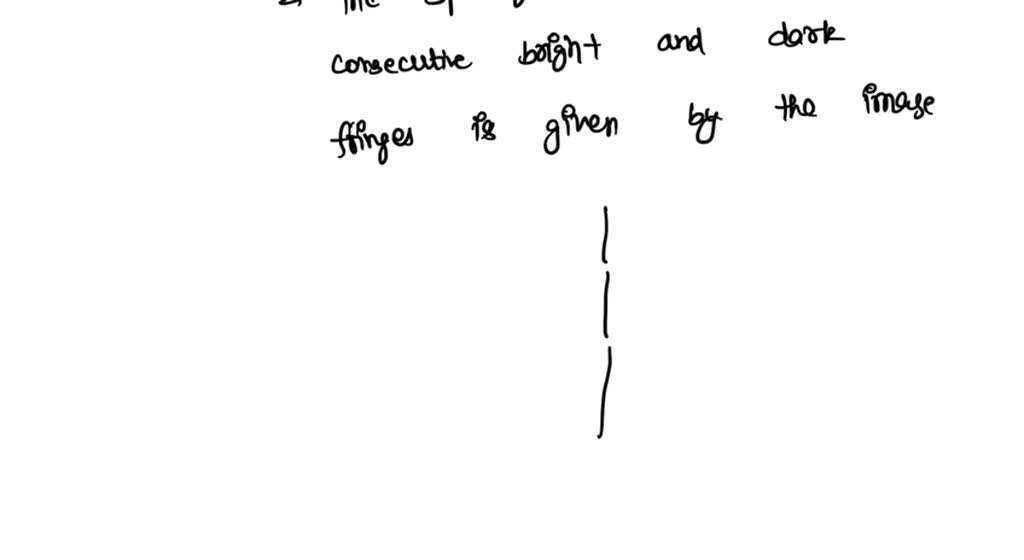 the
consecutive bright and dark
fringes is given by the image